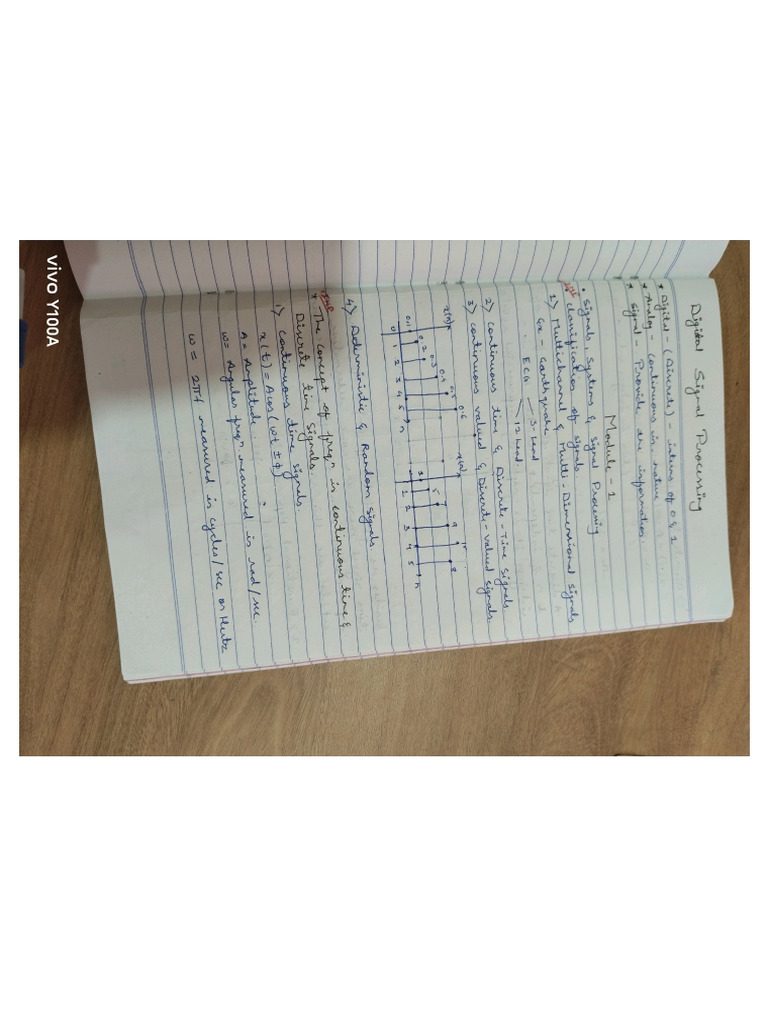 Digital Signal Processing
* Digital - (Discrete) - interms of 0 & 1.
* Analog - Continuous in nature
* Signal - Provide the information.
Module - 1
• Signals, Systems & Signal Processing
classification of signals
1) Multichannel & Multi - Dimensional signals
Ex - Earthquake
ECG
3 - Lead
12 - Lead
2) continuous time & Discrete - Time signals.
3) continuous valued & Discrete - valued signals.
x(n)
0.1 0.2 0.3 0.4 0.5 0.6
0 1 2 3 4 5 n
x(n)
3 5 7 9 11 8
0 1 2 3 4 5 n
4) Deterministic & Random signals.
Imp
* The concept of freqn is continuous time &
Discrete time signals.
1) continuous time signals
x(t) = A cos(wt ± ϕ)
A = Amplitude
w = Angular freqn measured is rad/sec.
w = 2πf measured is cycles/sec or Hertz
vivo Y100A